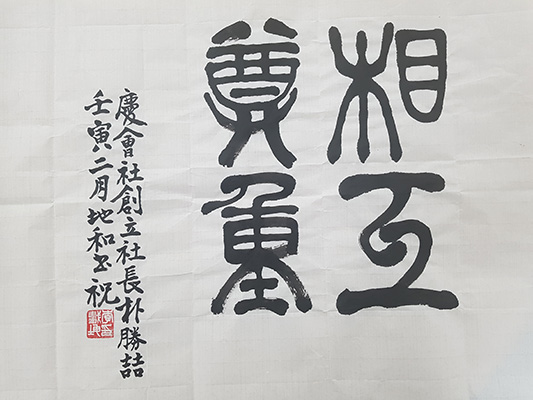 相互
尊重
慶會社創立社長朴勝喆
壬寅二月地和書祝